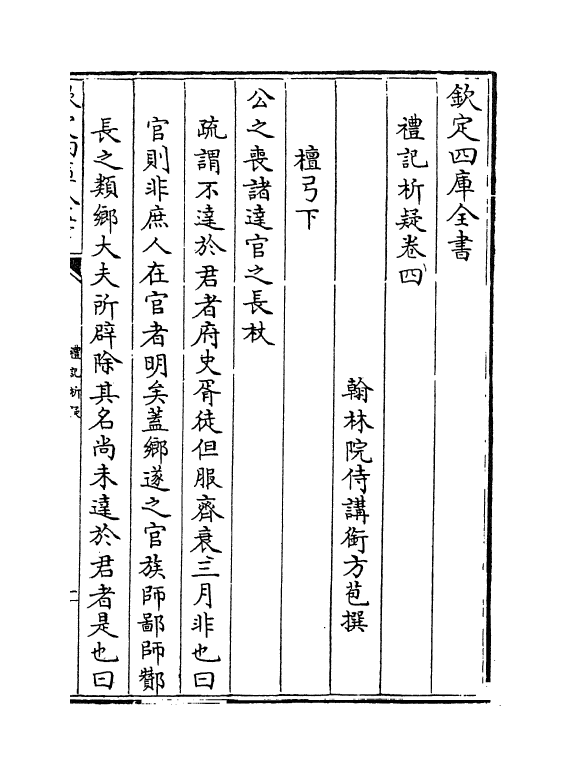 欽定四庫全書
禮記析疑卷四
翰林院侍講銜方苞撰
檀弓下
公之喪諸達官之長杖
疏謂不達於君者府史胥徒但服齊衰三月非也曰
官則非庶人在官者明矣蓋鄉遂之官族師鄙師酇
長之類鄉大夫所辟除其名尚未達於君者是也曰
禮記析疑